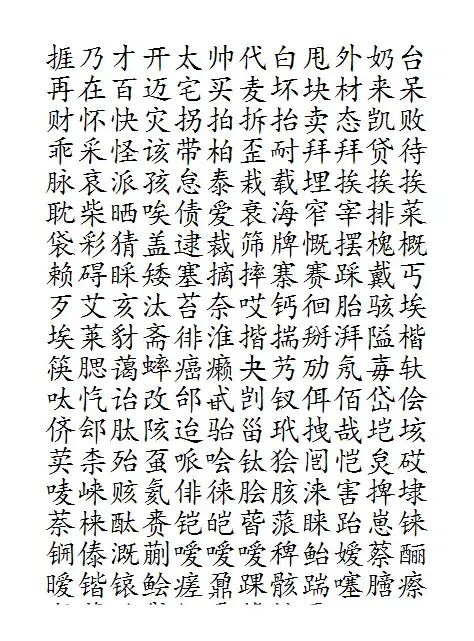 捱乃才开太帅代白甩外奶台
再在百迈宅买麦坏块材来呆
财怀快灾拐拍拆抬卖态凯败
乖采怪该带柏歪耐拜拜贷待
脉哀派孩怠泰栽载埋挨挨挨
耽柴晒唉债爱衰海窄宰排菜
袋彩猜盖逮裁筛牌慨摆槐概
赖碍睬矮塞摘摔寨赛踩戴丐
歹艾亥汰苔奈哎钙徊胎骇埃
埃莱豺斋徘淮揩揣掰湃隘楷
筷腮蔼蟀癌癞夬艿劢氖毐轪
呔忾诒改邰甙剀钗佴佰岱侩
侪郐肽陔迨骀甾玳拽哉垲垓
荬柰殆虿哌哙钛狯闿恺炱砹
唛崃赅氦俳徕脍胲涞害捭埭
萘梾酞赉铠皑蓓蒎睐跆崽铼
锎傣溉蒯嗳嗳嗳稗鲐嫒蔡酾
暧锴镱鲙瘥鼐踝骸踹噻臜瘵